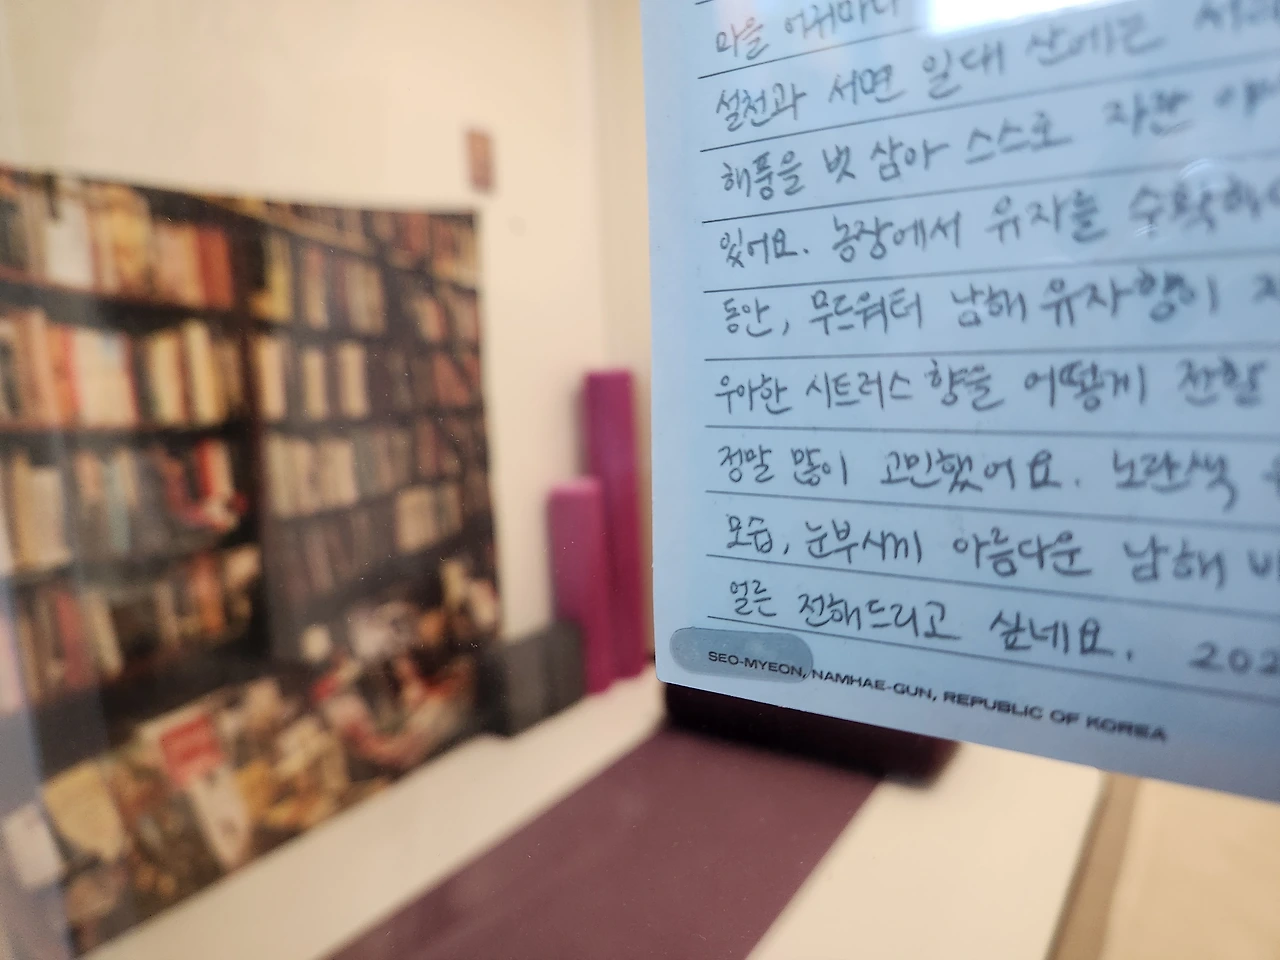 마을 어귀마다
설천과 서면 일대 산에는
해풍을 벗 삼아 스스로 자란
있어요. 농장에서 유자를
동안, 무드워터 남해 유자향이
우아한 시트러스 향을 어떻게 전할
정말 많이 고민했어요. 노란색
모습, 눈부시게 아름다운 남해
얼른 전해드리고 싶네요. 202
SEO-MYEON, NAMHAE-GUN, REPUBLIC OF KOREA